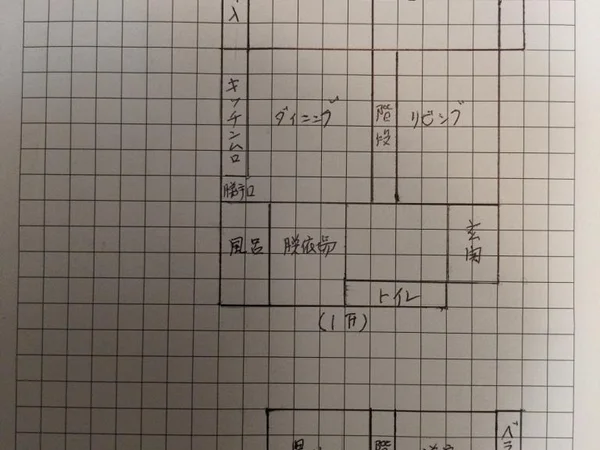 入
キッチン
ダイニング
階段
リビング
勝手口
風呂
脱衣場
玄関
トイレ
(1F)
階
ベラ